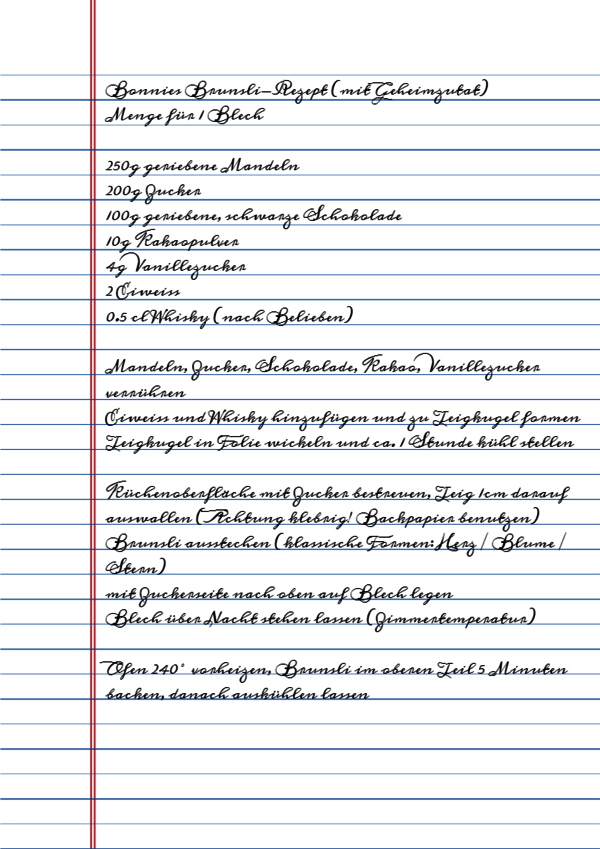 Bonnies Brunsli-Rezept (mit Geheimzutat)
Menge für 1 Blech
250g geriebene Mandeln
200g Zucker
100g geriebene, schwarze Schokolade
10g Kakaopulver
4g Vanillezucker
2 Eiweiss
0.5 cl Whisky (nach Belieben)
Mandeln, Zucker, Schokolade, Kakao, Vanillezucker
verrühren
Eiweiss und Whisky hinzufügen und zu Teigkugel formen
Teigkugel in Folie wickeln und ca. 1 Stunde kühl stellen
Küchenoberfläche mit Zucker bestreuen, Teig 1cm darauf
auswallen (Achtung klebrig! Backpapier benutzen)
Brunsli ausstechen (klassische Formen: Herz / Blume /
Stern)
mit Zuckerseite nach oben auf Blech legen
Blech über Nacht stehen lassen (Zimmertemperatur)
Ofen 240° vorheizen, Brunsli im oberen Teil 5 Minuten
backen, danach auskühlen lassen